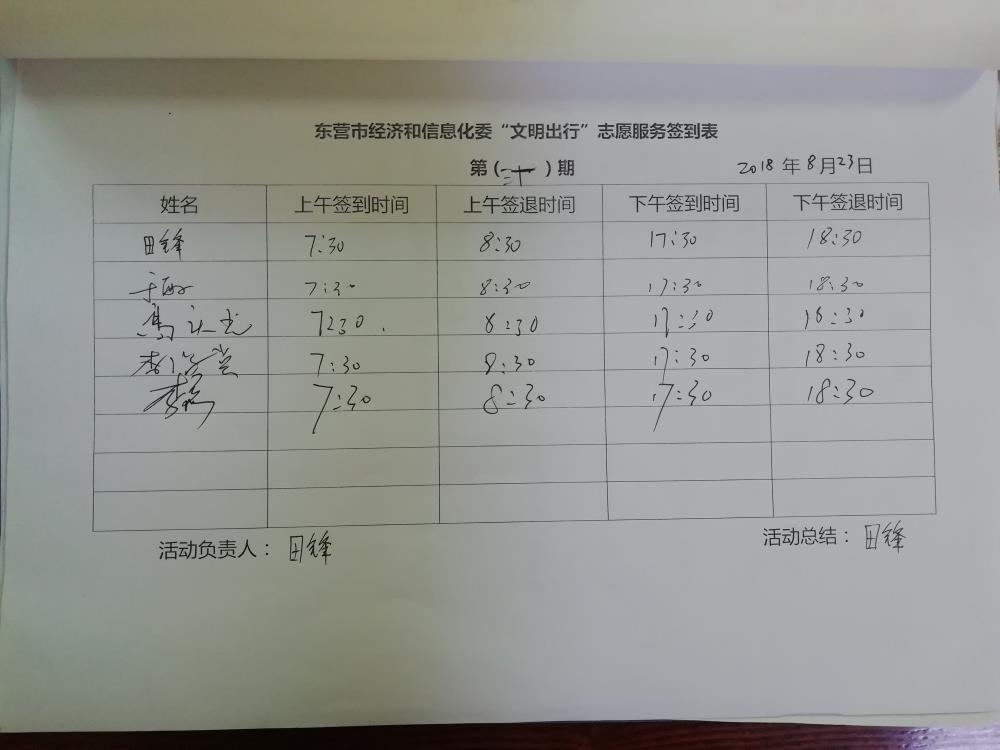 东营市经济和信息化委“文明出行”志愿服务签到表
第(三十)期 2018年8月23日
姓名 上午签到时间 上午签退时间 下午签到时间 下午签退时间
田锋 7:30 8:30 17:30 18:30
7:30 8:30 17:30 18:30
7:30 8:30 17:30 18:30
7:30 8:30 17:30 18:30
7:30 8:30 17:30 18:30
活动负责人：田锋 活动总结：田锋